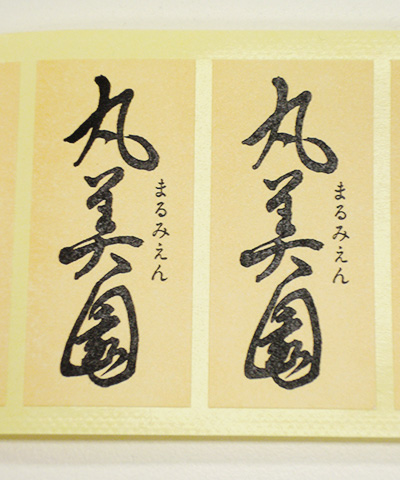 丸美園
まるみえん
丸美園
まるみえん